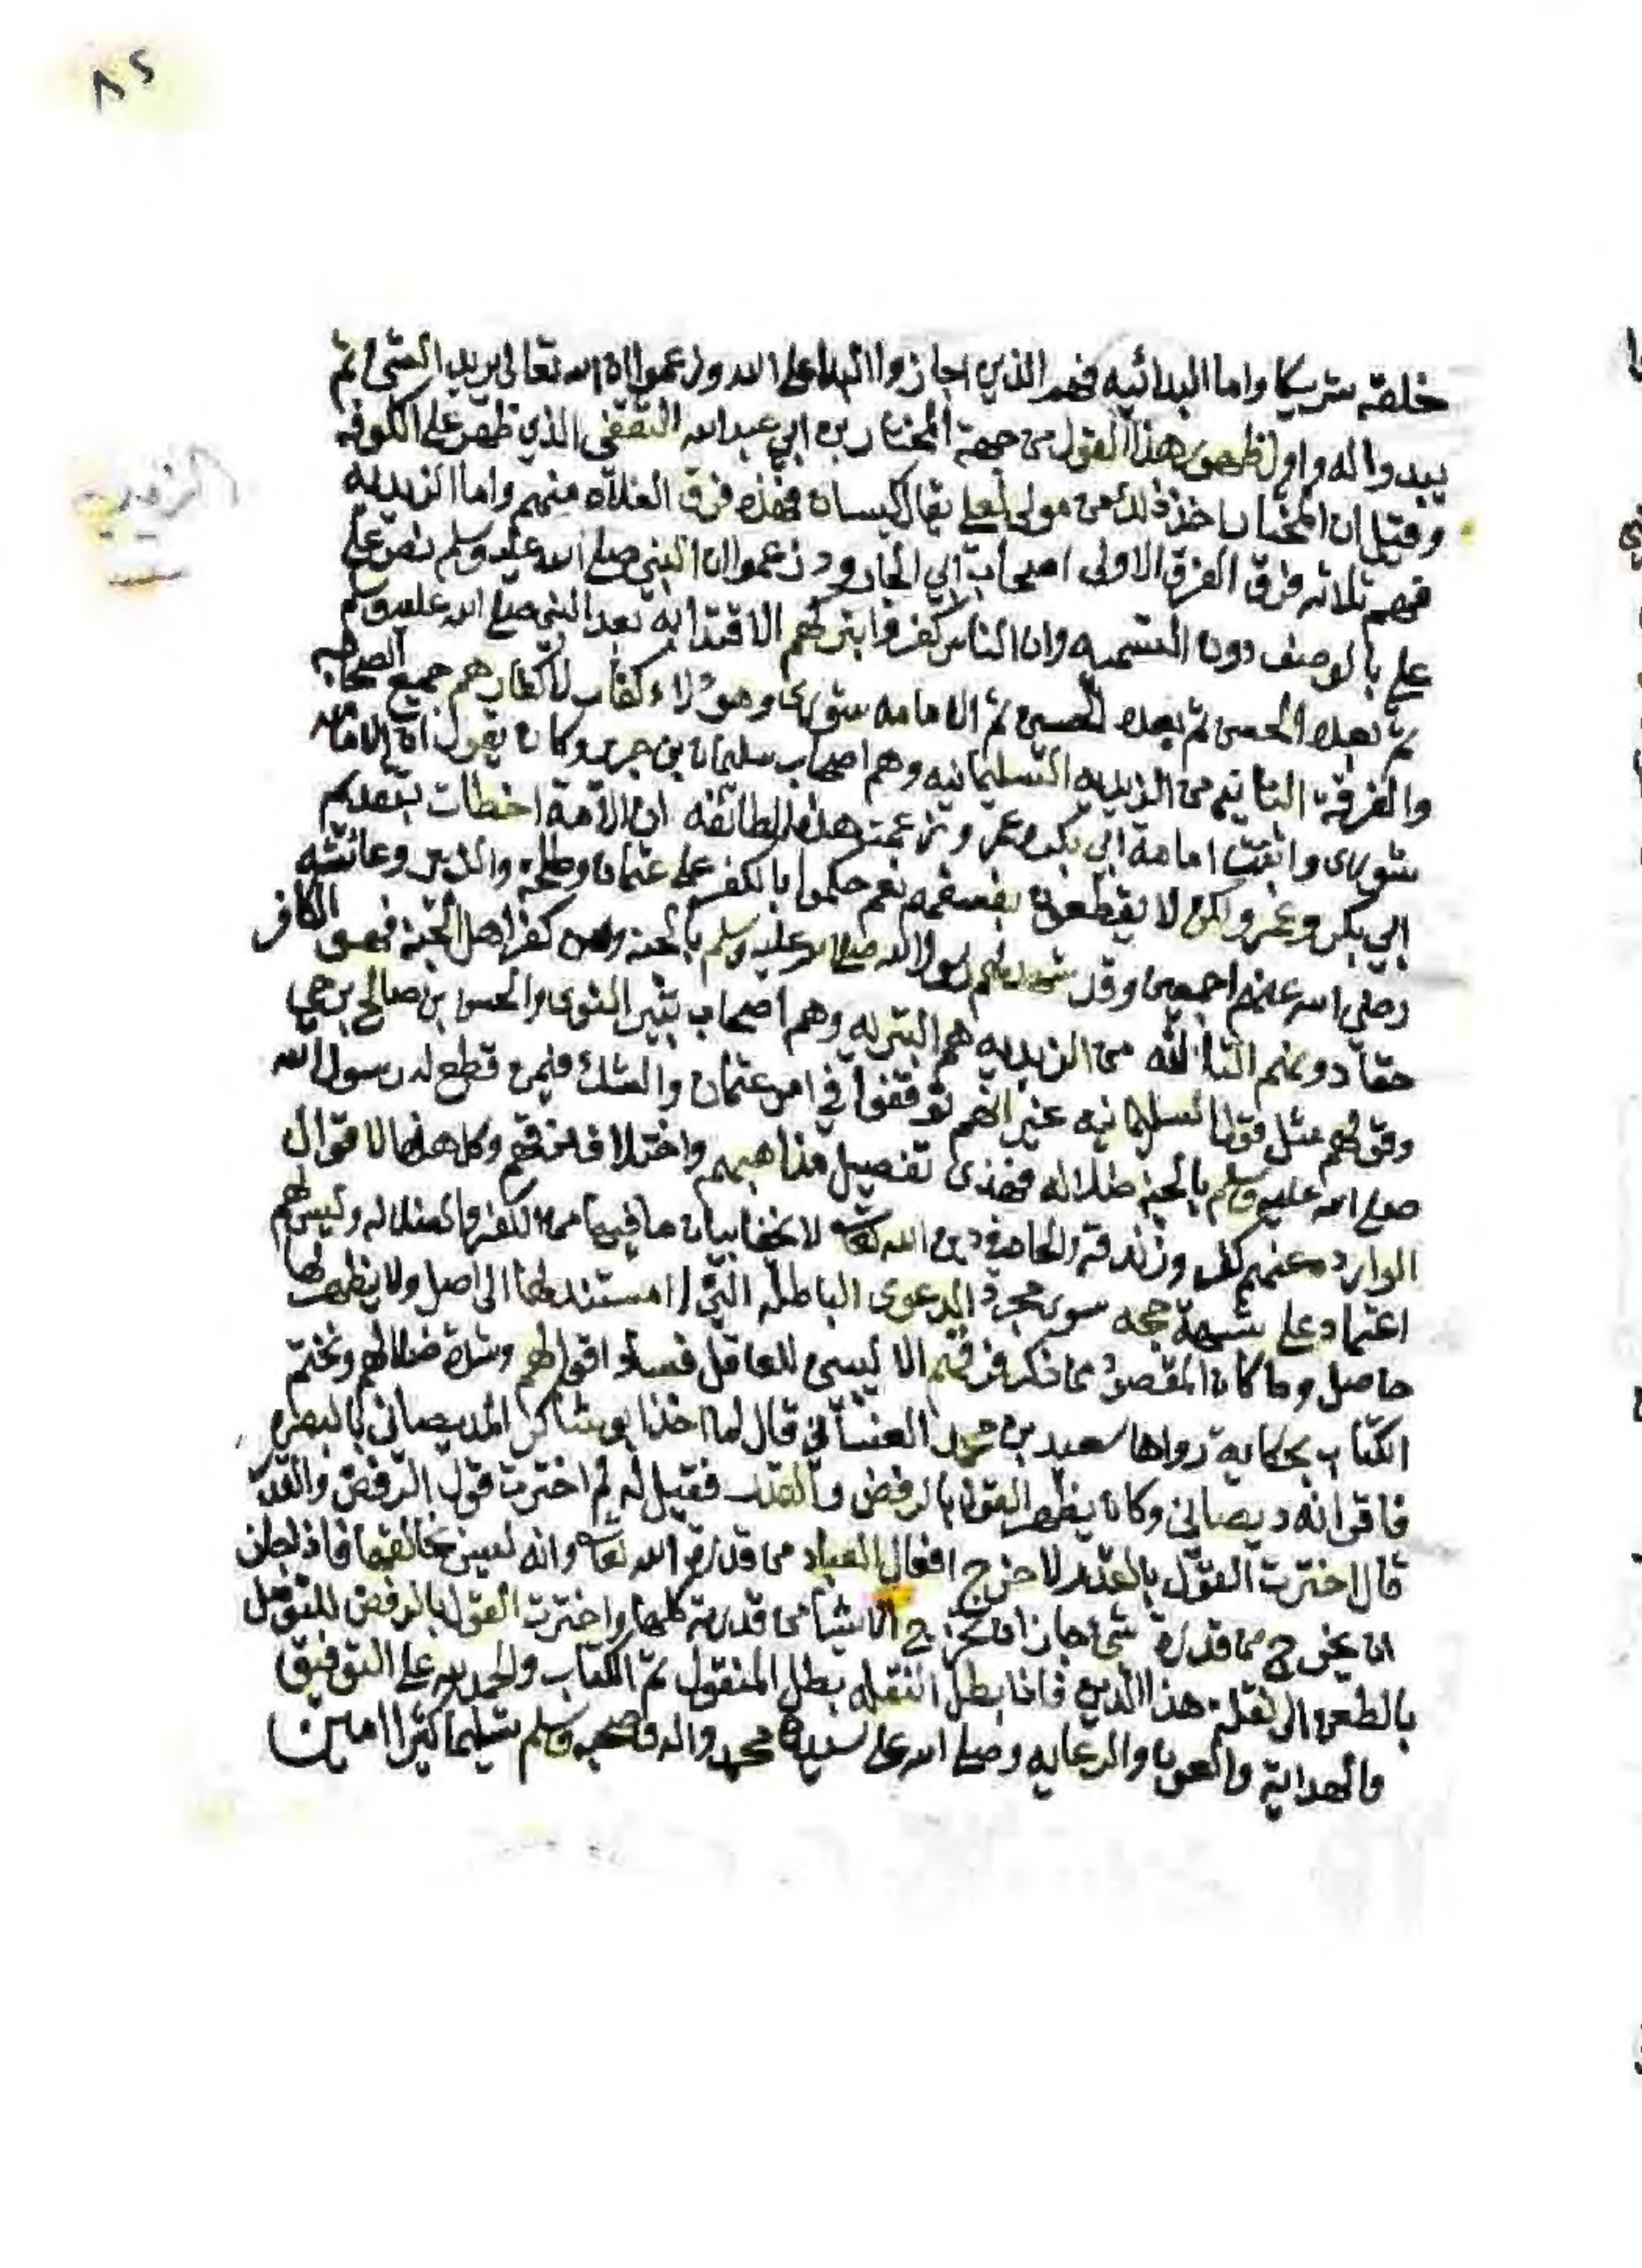 ٨٢
خلقه شريكا واما البدائيه فهم الذين اجازوا البدا على الله وزعموا ان الله تعالى يريد الشئ ثم
يبدوا له واول ظهور هذا القول من جهة المختار بن ابي عبد الله الثقفي الذي ظهر على الكوفه
وقيل ان المختار اخذ ذلك من مولى لعلي يقال كيسان فهذه فرق الغلاه منهم واما الزيديه
الزيديه
فهم ثلاثه فرق الفرق الاولى اصحاب ابي الجارود زعموا ان النبي صلى الله عليه وسلم نص على
علي بالوصف دون التسميه وان الناس كفروا بتركهم الاقتدا به بعد النبي صلى الله عليه وسلم
ثم بعده الحسن ثم بعده الحسين ثم الامامه شورى وهؤلاء كفار لاكفارهم جميع الصحابه
والفرقه الثانيه من الزيديه السليمانيه وهم اصحاب سليمان بن جرير وكان يقول ان الامامه
شورى واثبت امامة ابي بكر وعمر وزعمت هذه الطائفه ان الامة اخطات بتقديم
ابي بكر وعمر ولكن لا يقطعون بفسقهم نعم حكموا بالكفر على عثمان وطلحة والزبير وعائشه
رضي الله عنهم اجمعين وقد شهد لهم رسول الله صلى الله عليه وسلم بالجنه ومن كفر اهل الجنة فهو الكافر
حقا ومنهم الثالثه من الزيديه هم البتريه وهم اصحاب بتير النوى والحسن بن صالح بن حي
وقولهم مثل قول السليمانيه غير انهم توقفوا في امر عثمان والشك فيمن قطع له رسول الله
صلى الله عليه وسلم بالجنه ضلاله فهذى تفصيل مذاهبهم واختلاف فرقهم وكل هذه الاقوال
الوارده عنهم كفر وزندقة والحاد في دين الله تعالى لا يخفا بيان ما فيها من الكفر والضلاله وليس لهم
اعتماد على شبهة حجه سوى مجرد الدعوى الباطله التي لا مستند لها الى اصل ولا يظهر لها
حاصل وما كان المقصود من ذكر فرقهم الا ليس للعاقل فساد اقوالهم وشدة ضلالهم ونختم
الكتاب بحكاية رواها سعيد بن محمد الغساني قال لما اخذ ابو شاكر الديصاني بالبصره
فاقر انه ديصاني وكان يظهر القول بالرفض والقدر فقيل له لم اخترت قول الرفض والقدر
قال اخترت القول بالقدر لاخرج افعال العباد من قدرة الله تعالى وانه ليس خالقها فاذا جاز
ان يخرج من قدرته شئ جاز ان تخرج الاشيا من قدرته كلها واخترت القول بالرفض للتوصل
بالطعن الى نقلة هذا الدين فاذا بطل النقله بطل المنقول تم الكتاب والحمد لله على التوفيق
والهداية والعون والرعايه وصلى الله على سيدنا محمد واله وصحبه وسلم تسليما كثيرا امين